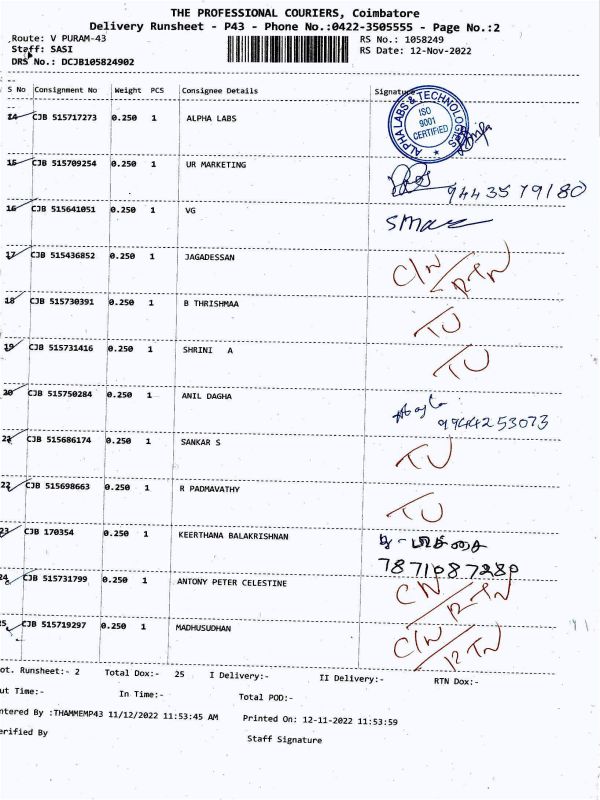 THE PROFESSIONAL COURIERS, Coimbatore
Delivery Runsheet - P43 - Phone No.:0422-3505555 - Page No.:2
Route: V PURAM-43 RS No.: 1058249
Staff: SASI RS Date: 12-Nov-2022
DRS No.: DCJB105824902
S No Consignment No Weight PCS Consignee Details Signature
14 CJB 515717273 0.250 1 ALPHA LABS
ALPHA LABS & TECHNOLOGIES
ISO
9001
CERTIFIED
15 CJB 515709254 0.250 1 UR MARKETING
9443579180
16 CJB 515641051 0.250 1 VG
17 CJB 515436852 0.250 1 JAGADESSAN C/N RTN
18 CJB 515730391 0.250 1 B THRISHMAA TU
19 CJB 515731416 0.250 1 SHRINI A TU
20 CJB 515750284 0.250 1 ANIL DAGHA
9944253073
21 CJB 515686174 0.250 1 SANKAR S TU
22 CJB 515698663 0.250 1 R PADMAVATHY TU
23 CJB 170354 0.250 1 KEERTHANA BALAKRISHNAN
7871087280
24 CJB 515731799 0.250 1 ANTONY PETER CELESTINE CN/RTN
25 CJB 515719297 0.250 1 MADHUSUDHAN C/N/RTN
ot. Runsheet:- 2 Total Dox:- 25 I Delivery:- II Delivery:- RTN Dox:-
ut Time:- In Time:- Total POD:-
ntered By :THAMMEMP43 11/12/2022 11:53:45 AM Printed On: 12-11-2022 11:53:59
erified By Staff Signature